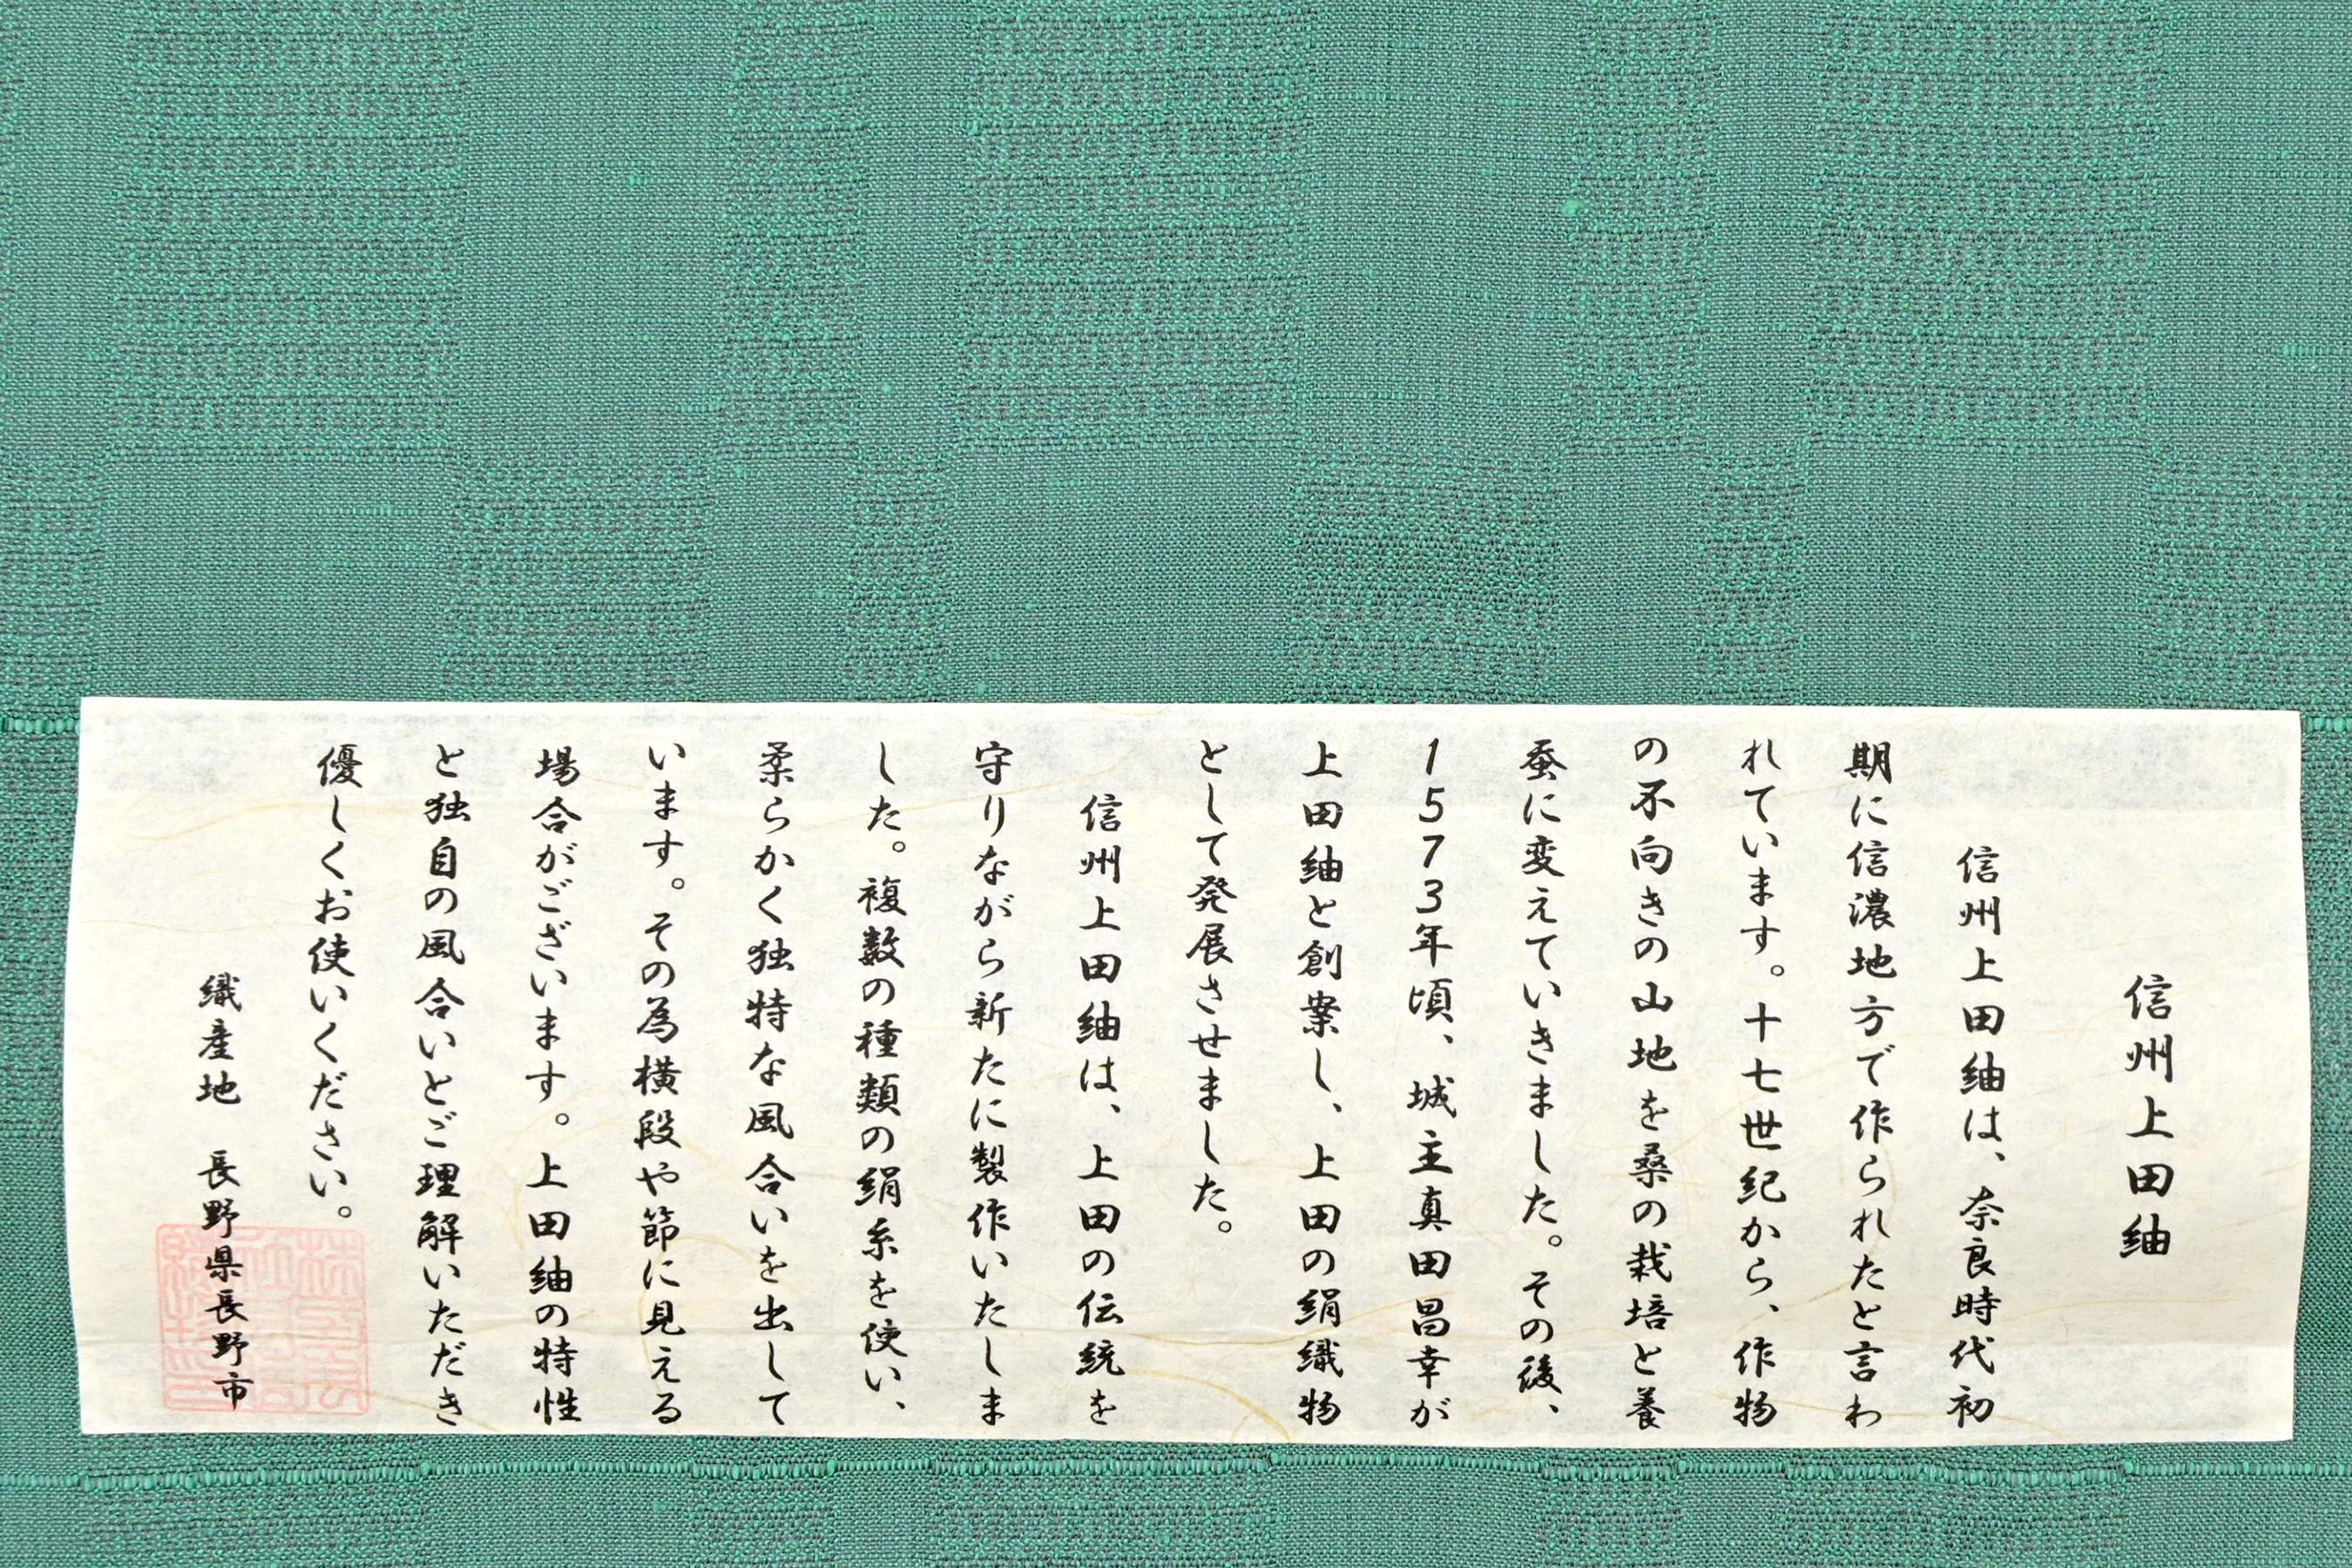 信州上田紬
信州上田紬は、奈良時代初
期に信濃地方で作られたと言わ
れています。十七世紀から、作物
の不向きの山地を桑の栽培と養
蚕に変えていきました。その後、
1573年頃、城主真田昌幸が
上田紬と創案し、上田の絹織物
として発展させました。
信州上田紬は、上田の伝統を
守りながら新たに製作いたしま
した。複数の種類の絹糸を使い、
柔らかく独特な風合いを出して
います。その為横段や節に見える
場合がございます。上田紬の特性
と独自の風合いとご理解いただき
優しくお使いください。
織産地 長野県長野市